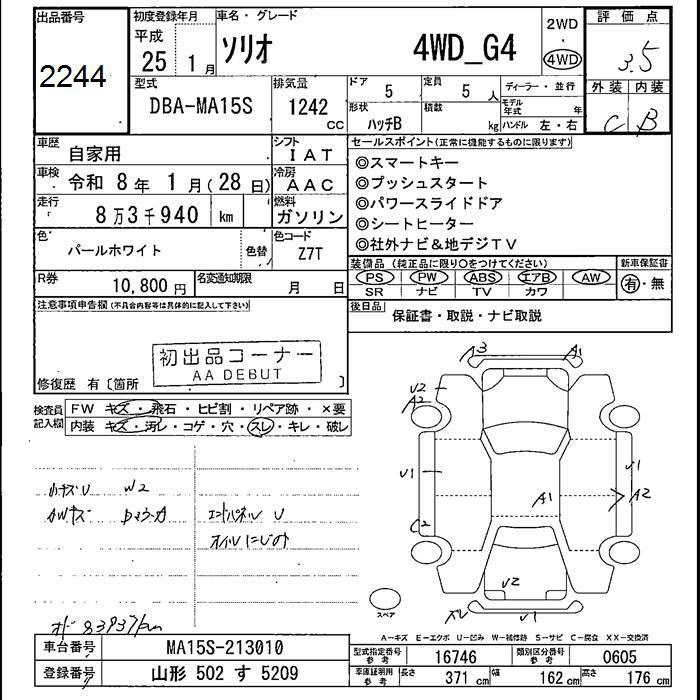 出品番号
2244
初度登録年月
平成
25 1月
車名・グレード
ソリオ 4WD_G4
2WD
・
4WD
評価点
3.5
外装 内装
C B
型式
DBA-MA15S
排気量
1242 CC
ドア
5
定員
5 人
ディーラー・並行
形状
ハッチB
積載
kg
モデル年式 年
ハンドル 左・右
車歴
自家用
シフト
IAT
車検
令和 8年 1月(28日)
冷房
AAC
走行
8万3千940 km
燃料
ガソリン
色
パールホワイト
色替
色コード
Z7T
R券
10,800円
名変通知期限
月 日
セールスポイント(正常に機能するものに限ります)
◎スマートキー
◎プッシュスタート
◎パワースライドドア
◎シートヒーター
◎社外ナビ&地デジTV
装備品(純正品に限り○をつけてください)
新車保証書
PS PW ABS エアB AW
有・無
SR ナビ TV カワ
後日品
保証書・取説・ナビ取説
注意事項申告欄(不具合内容等は具体的に記入して下さい)
初出品コーナー
AA DEBUT
修復歴 有〔箇所 〕
検査員記入欄
FW キズ・飛石・ヒビ割・リペア跡・×要
内装 キズ・汚レ・コゲ・穴・スレ・キレ・破レ
小キズU W2
AWキズ
エンドパネルU
オイルにじみ
83937km
A3 A1
V2
A2
V1
C2
A1
V1
A2
V2
V1
スペア
A―キズ E―エクボ U―凹み W―補修跡 S―サビ C―腐食 XX―交換済
車台番号
MA15S-213010
型式指定番号
参考
16746
類別区分番号
参考
0605
登録番号
山形 502 す 5209
車庫証明用
参考
長さ 371 cm 幅 162 cm 高さ 176 cm